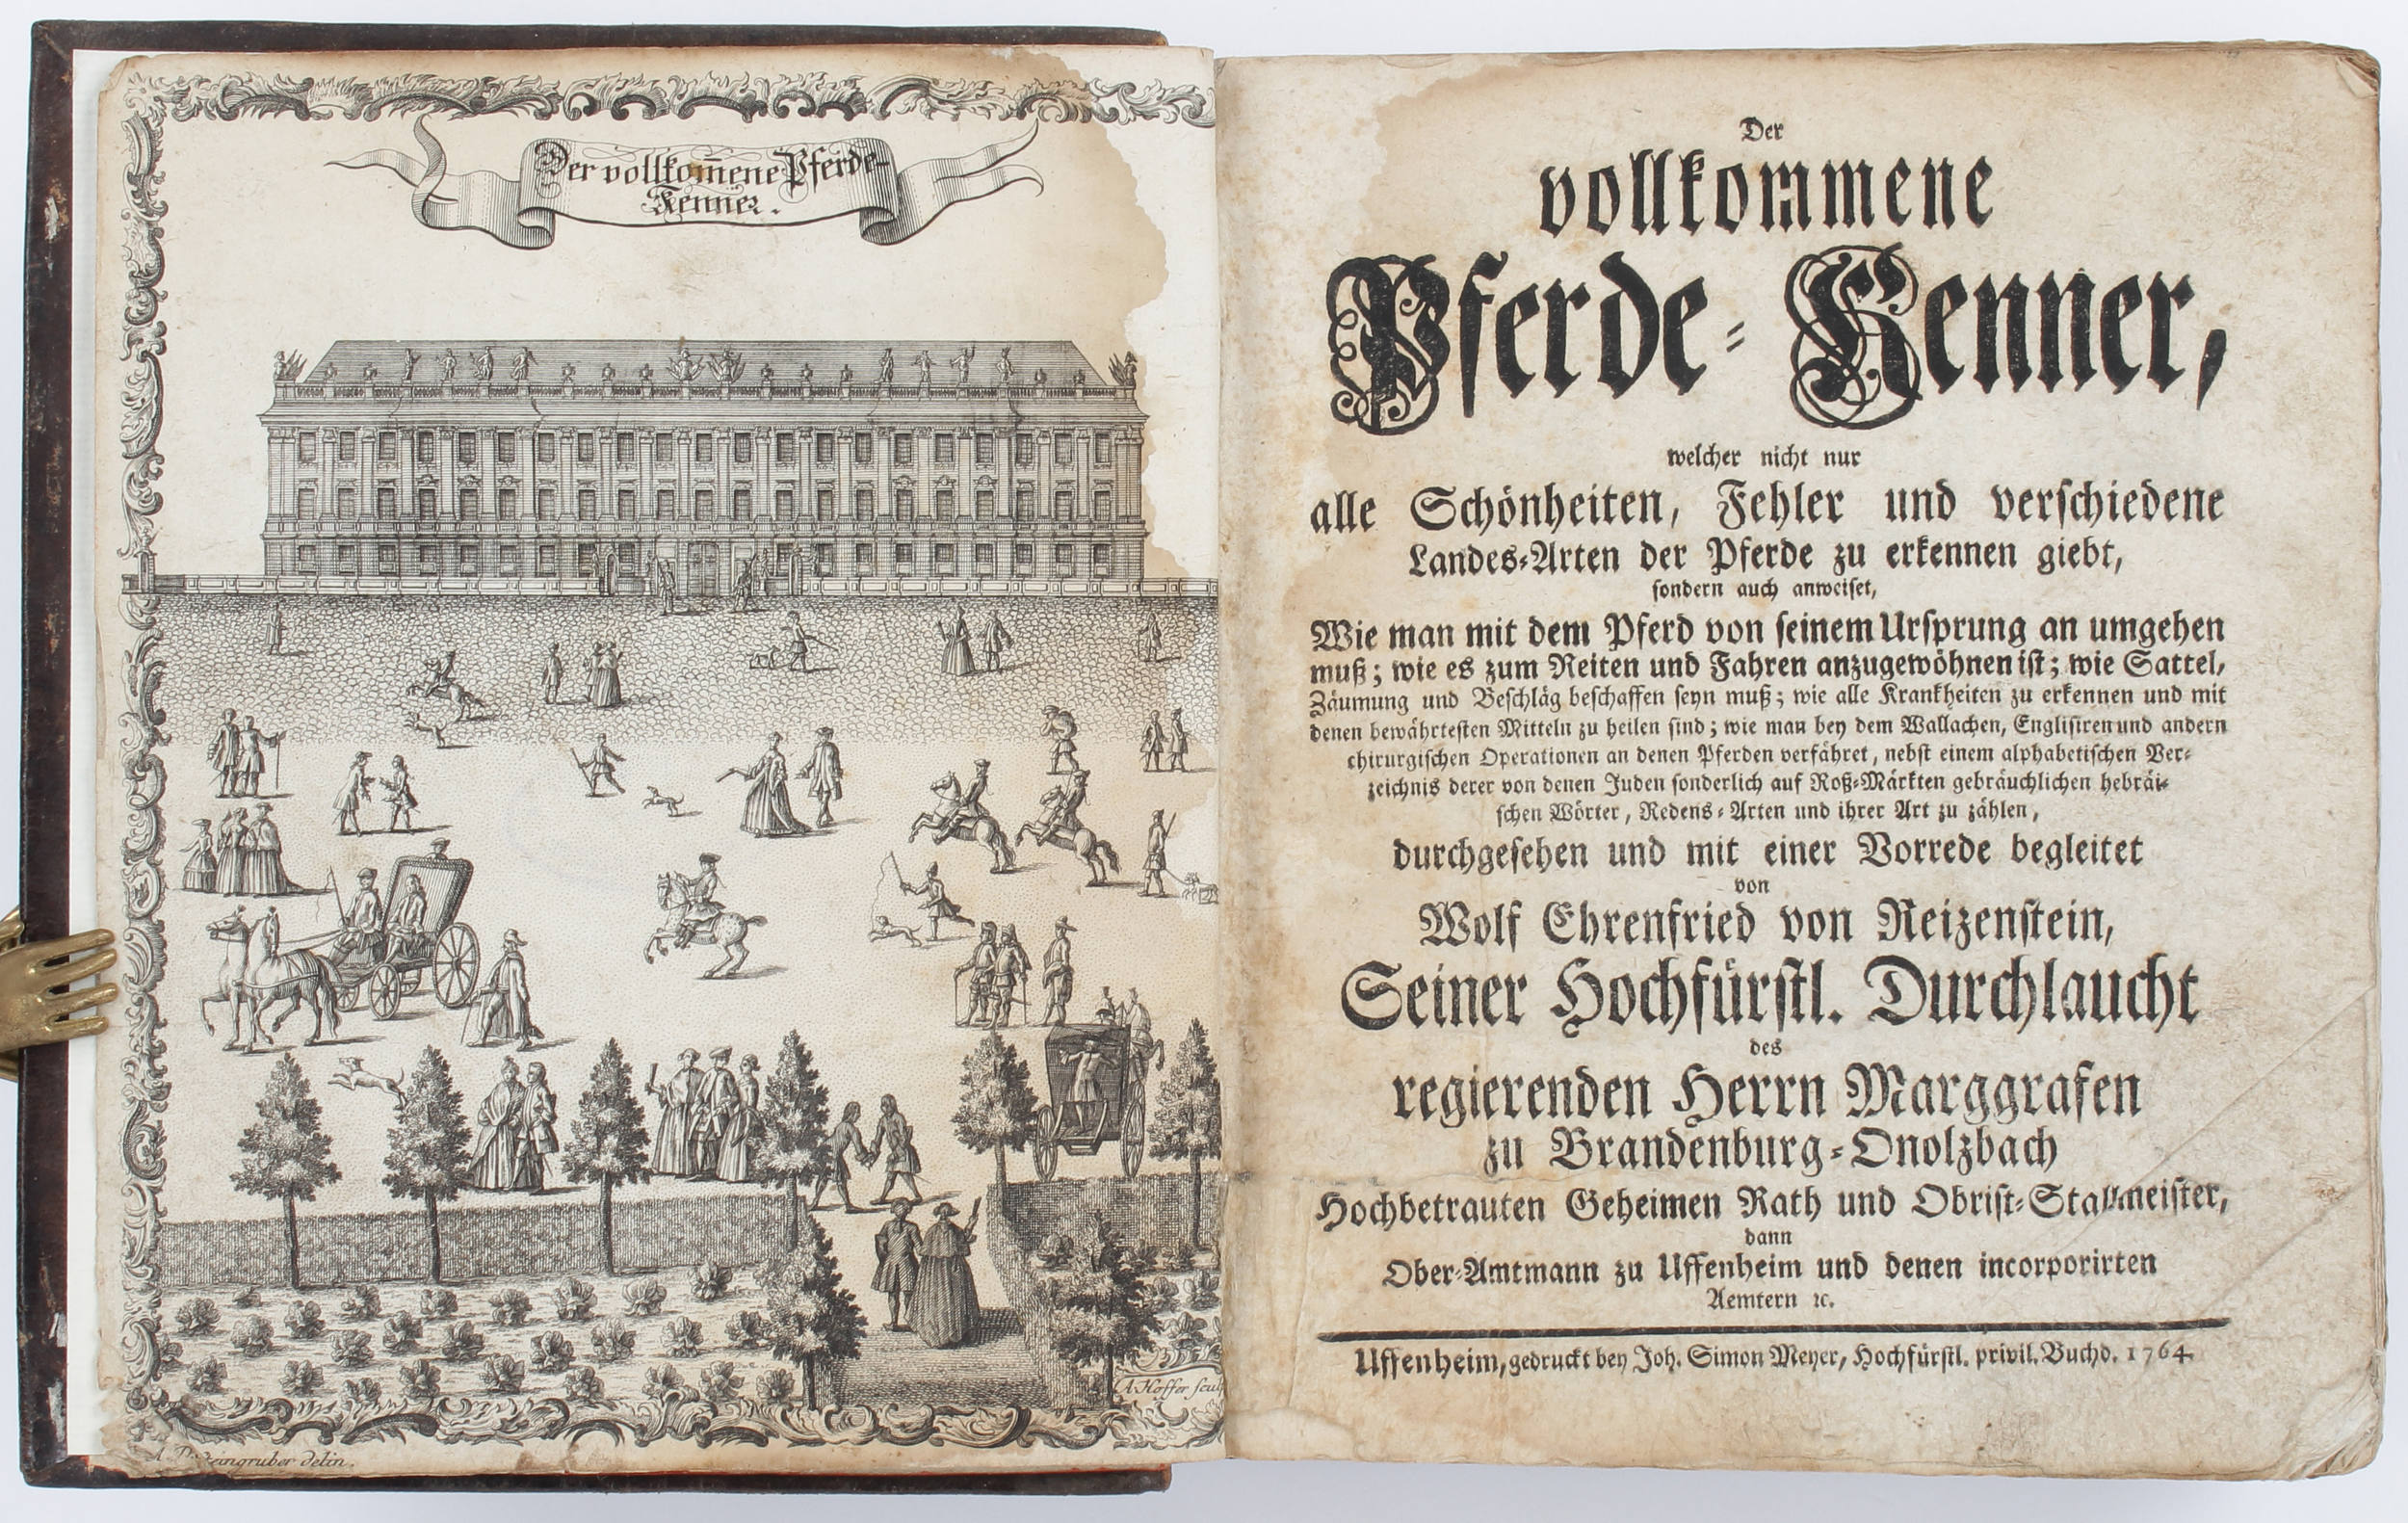 Der vollkom̄ene Pferde-
Kenner.
A Hoffer sculp
delin.
Der
vollkommene
Pferde-Kenner,
welcher nicht nur
alle Schönheiten, Fehler und verschiedene
Landes-Arten der Pferde zu erkennen giebt,
sondern auch anweiset,
Wie man mit dem Pferd von seinem Ursprung an umgehen
muß; wie es zum Reiten und Fahren anzugewöhnen ist; wie Sattel,
Zäumung und Beschläg beschaffen seyn muß; wie alle Krankheiten zu erkennen und mit
denen bewährtesten Mitteln zu heilen sind; wie man bey dem Wallachen, Englisiren und andern
chirurgischen Operationen an denen Pferden verfähret, nebst einem alphabetischen Ver-
zeichnis derer von denen Juden sonderlich auf Roß-Märkten gebräuchlichen hebräi-
schen Wörter, Redens-Arten und ihrer Art zu zählen,
durchgesehen und mit einer Vorrede begleitet
von
Wolf Ehrenfried von Reizenstein,
Seiner Hochfürstl. Durchlaucht
des
regierenden Herrn Marggrafen
zu Brandenburg-Onolzbach
Hochbetrauten Geheimen Rath und Obrist-Stallmeister,
dann
Ober-Amtmann zu Uffenheim und denen incorporirten
Aemtern ꝛc.
Uffenheim, gedruckt bey Joh. Simon Meyer, Hochfürstl. privil. Buchd. 1764.